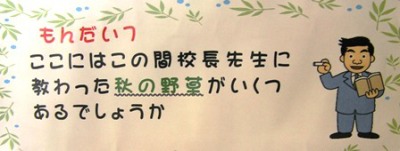 もんだい1
ここにはこの間校長先生に
教わった秋の野草がいくつ
あるでしょうか